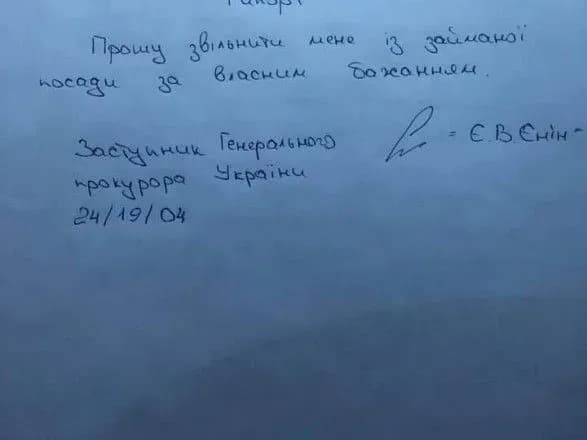 Рапорт
Прошу звільнити мене із займаної
посади за власним бажанням.
Заступник Генерального
прокурора України
= Є.В.Єнін =
24/19/04